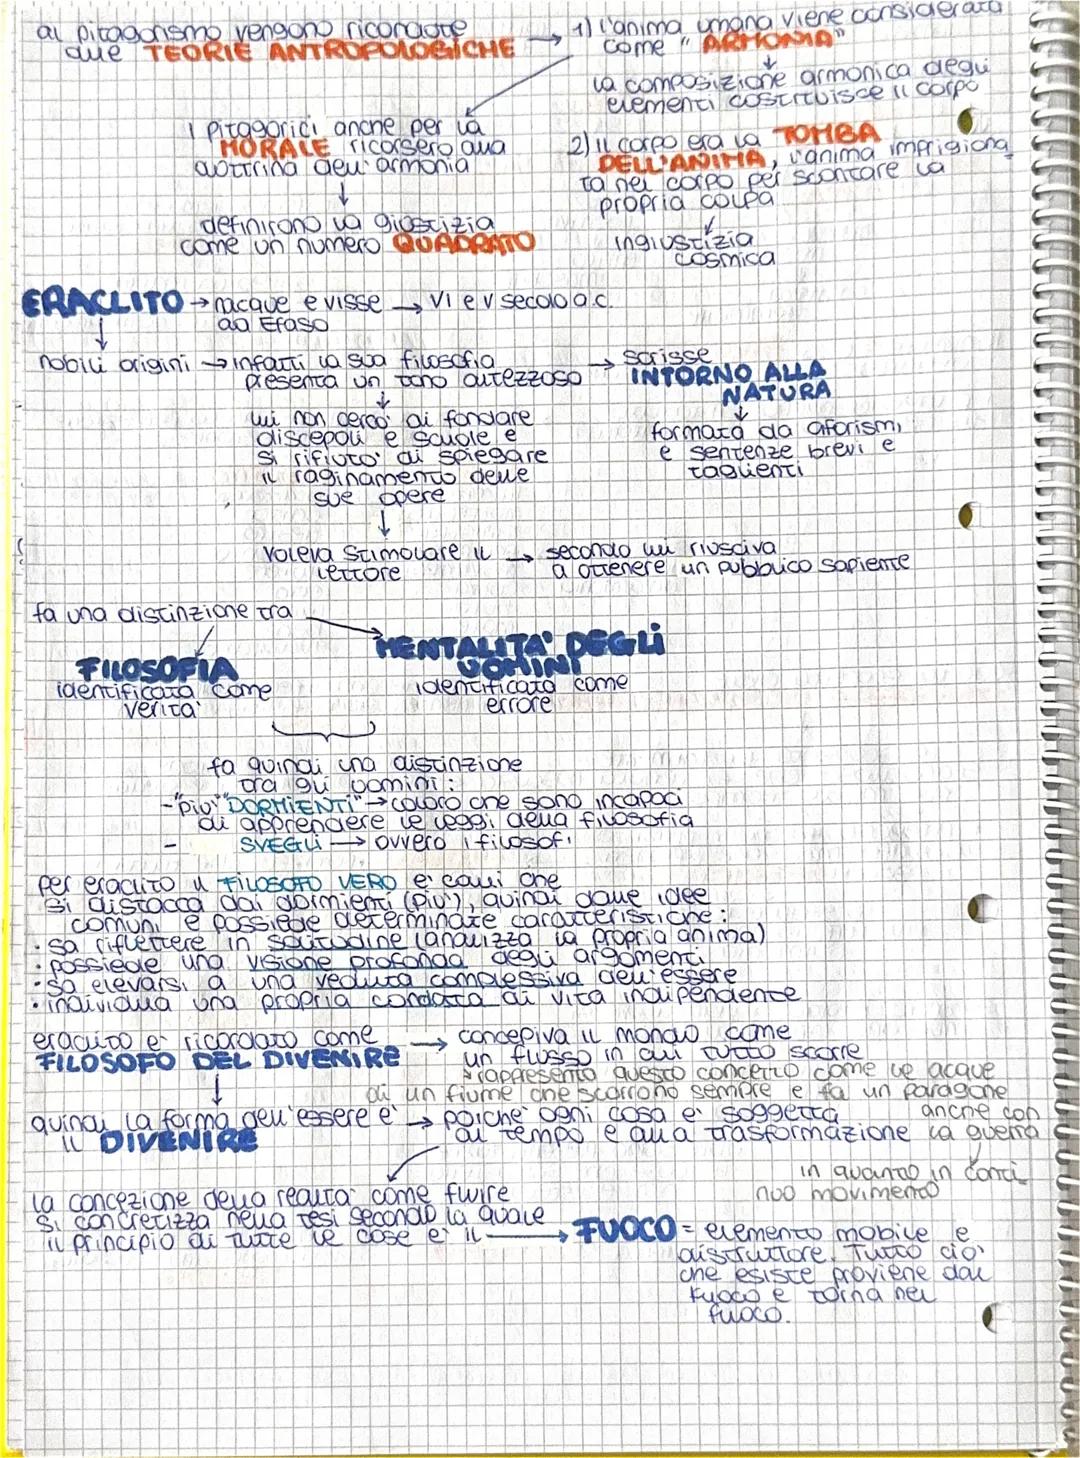 al pitagorismo vengono ricondotte
due TEORIE ANTROPOLOGICHE →
1) l'anima umana viene considerata
come "ARMONIA"
↓
la composizione armonica degli
elementi costituisce il corpo
I pitagorici anche per la
MORALE ricorsero alla
dottrina dell'armonia
↓
definirono la giustizia
come un numero QUADRATO
2) il corpo era la TOMBA
DELL'ANIMA, l'anima imprigiona
ta nel corpo per scontare la
propria colpa
↓
ingiustizia
cosmica
ERACLITO → nacque e visse → VI e V secolo a.c.
ad Efaso
↓
nobili origini → infatti la sua filosofia
presenta un tono altezzoso →
scrisse
INTORNO ALLA
NATURA
↓
formata da aforismi
e sentenze brevi e
taglienti
↓
lui non cercò di fondare
discepoli e scuole e
si rifiutò di spiegare
il raginamento delle
sue opere
↓
voleva stimolare il → secondo lui riusciva
lettore a ottenere un pubblico sapiente
fa una distinzione tra
FILOSOFIA
identificata come
verità
MENTALITA' DEGLI
UOMINI
identificata come
errore
fa quindi una distinzione
tra gli uomini:
- "più" "DORMIENTI" → coloro che sono incapaci
di apprendere le leggi della filosofia
- SVEGLI → ovvero i filosofi
per eraclito il FILOSOFO VERO è colui che
si distacca dai dormienti (più), quindi dalle idee
comuni e possiede determinate caratteristiche:
• sa riflettere in solitudine (analizza la propria anima)
• possiede una visione profonda degli argomenti
• sa elevarsi a una veduta complessiva dell'essere
• individua una propria condotta di vita indipendente
eraclito è ricordato come →
FILOSOFO DEL DIVENIRE
concepiva il mondo come
un flusso in cui tutto scorre
↳ rappresentò questo concetto come le acque
di un fiume che scorrono sempre e fa un paragone
anche con
la guerra
in quanto in conti
nuo movimento
↓
quindi la forma dell'essere è → poiché ogni cosa è soggetta
il DIVENIRE al tempo e alla trasformazione
la concezione della realtà come fluire
si concretizza nella tesi secondo la quale
il principio di tutte le cose è il → FUOCO = elemento mobile e
distruttore. Tutto ciò
che esiste proviene dal
fuoco e torna nel
fuoco.